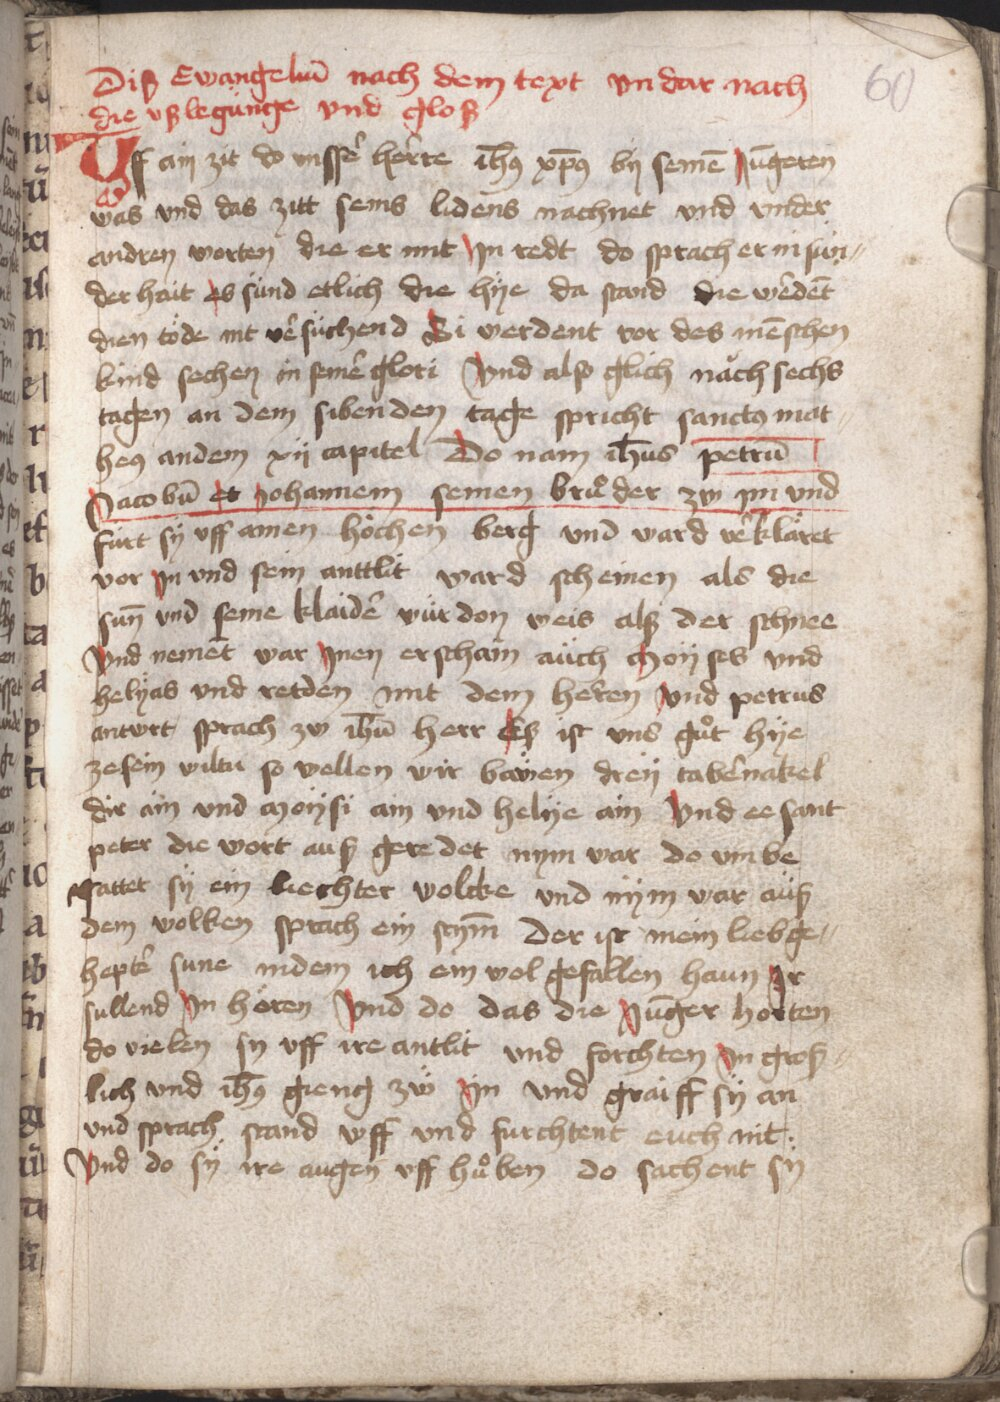 60
Diß Ewangeliū nach dem text vn dar nach
die vßlegunge vnd gloß
Uff ain zit do vnsser̄ herre ih̄s xp̄s bÿ seinē Jūngeren
was vnd das zitt seins lidens nachnet vnd vnder
andren worten die er mit In redt do sprach er in sun⸗
der hait es sind etlich die hÿe da stand die wer̄dēt
dien tode nit ver̄suchend Si werdent vor des mēschen
kind sechen in seiner̄ glori Vnd also glich năch sechs
tagen an dem sibenden tage spricht sanctus mat⸗
heus an dem xvij capitel Do nam ih̄us petrū
Jacobū et Johannem seinen brůder zw im vnd
furt sÿ vff ainen hochen berg vnd ward ver̄klaret
vor In vnd sein anttlit ward scheinen als die
sun̄ vnd seine klaider̄ wurdon weis alß der schnee
Vnd nemēt war Inen erschain auch Moÿses vnd
helÿas vnd retden mit dem herren Vnd petrus
antwrt sprach zw ih̄u herr Es ist vns gůt hÿe
zesein wiltu so wellen wir bawen dreÿ taber̄nakel
dir ain vnd Moÿsi ain vnd helÿe ain Vnd ee sant
peter die wort auß geredet nym war do vmbe
schattet sÿ ein liechter wolcke vnd nÿm war auß
dem wolken sprach ein stym̄ Der ist mein liebge⸗
hepter̄ sune in dem ich ein wol gefallen haun Ir
sullend In hören Vnd do das die Jūnger horten
do vielen sy vff ire antlit vnd forchten In groß⸗
lich vnd ih̄s gieng zw In vnd graiff sÿ an
vnd sprach stand vff vnd furchtent euch nit.
Vnd do sÿ ire augen vff hůben do sachent sÿ